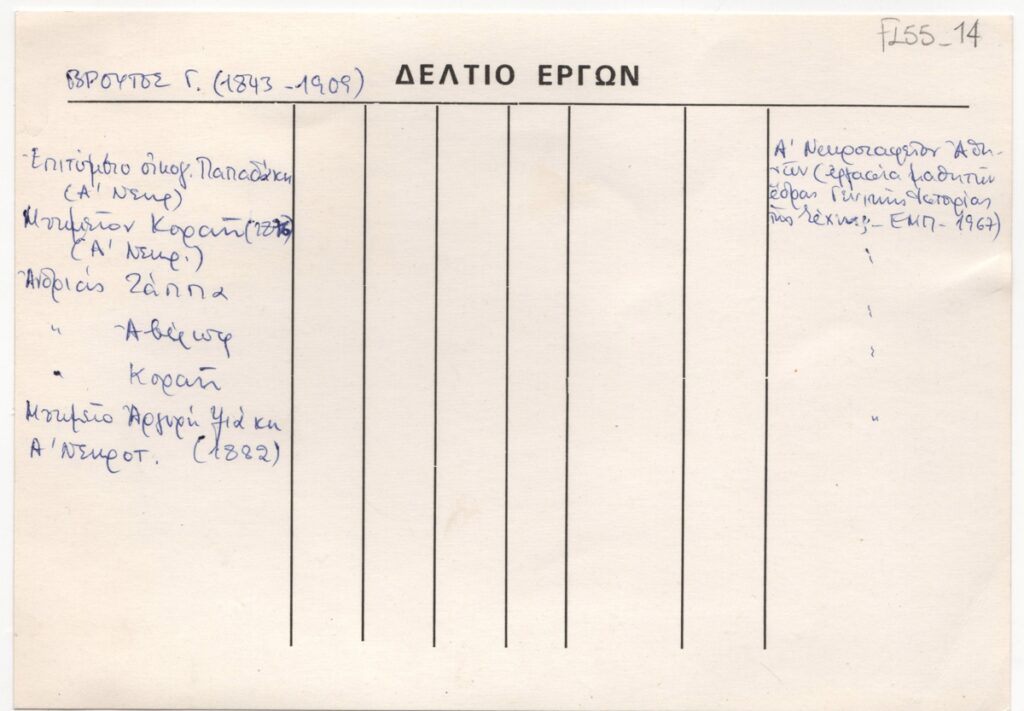 FL55_14
ΒΡΟΥΤΟΣ Γ. (1843 - 1909)
ΔΕΛΤΙΟ ΕΡΓΩΝ
Ἐπιτύμβιο οἰκογ. Παπαδάκη
(Α' Νεκρ)
Μνημεῖον Κοραῆ (1876)
(Α' Νεκρ.)
Ἀνδριάς Ζάππα
" Ἀβέρωφ
" Κοραῆ
Μνημεῖο Ἀργυρῆ Ψιάκη
Α' Νεκροτ. (1882)
Α' Νεκροταφεῖον Ἀθη-
νῶν (ἐργασία μαθητῶν
ἕδρας Γενικῆς Ἱστορίας
τῆς Τέχνης - ΕΜΠ - 1967)
"
"
"
"